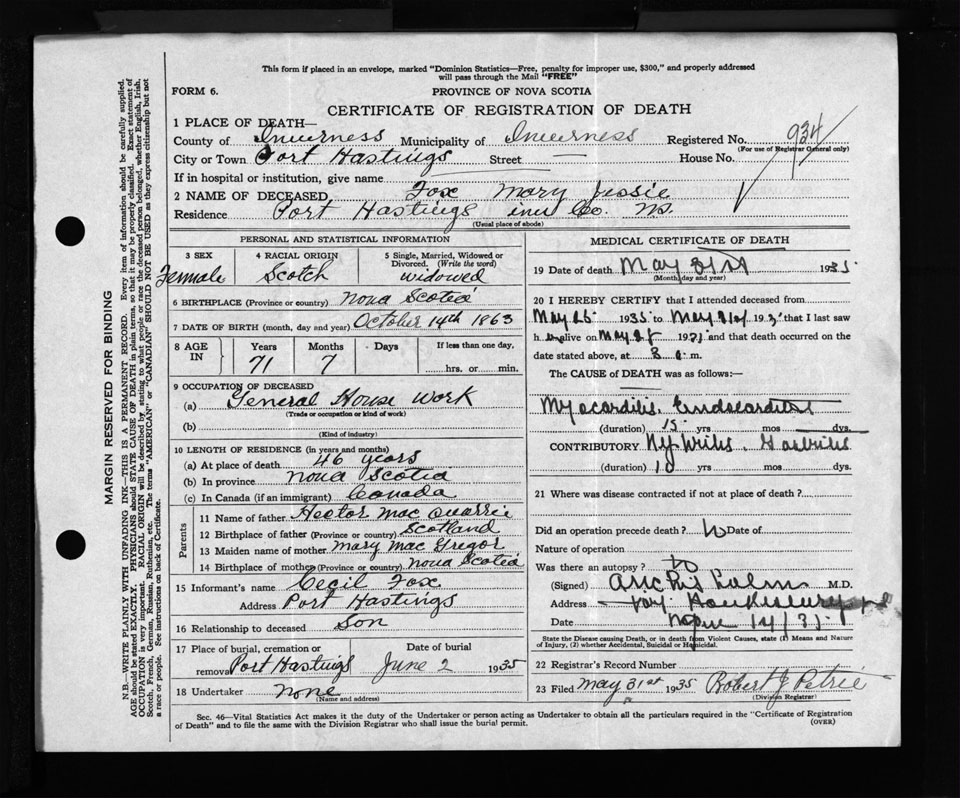 This form if placed in an envelope, marked "Dominion Statistics—Free, penalty for improper use, $300," and properly addressed
will pass through the Mail "FREE"
FORM 6.
PROVINCE OF NOVA SCOTIA
CERTIFICATE OF REGISTRATION OF DEATH
1 PLACE OF DEATH—
County of Inverness Municipality of Inverness Registered No. 934
(For use of Registrar General only)
City or Town Port Hastings Street — House No.
If in hospital or institution, give name
2 NAME OF DECEASED Fox Mary Jessie
Residence Port Hastings inv Co. N.S.
(Usual place of abode)
PERSONAL AND STATISTICAL INFORMATION
3 SEX
Female
4 RACIAL ORIGIN
Scotch
5 Single, Married, Widowed or
Divorced. (Write the word)
widowed
6 BIRTHPLACE (Province or country) Nova Scotia
7 DATE OF BIRTH (month, day and year) October 14th 1863
8 AGE IN
Years Months Days If less than one day,
71 7 hrs. or min.
9 OCCUPATION OF DECEASED
(a) General House work
(Trade or occupation or kind of work)
(b)
(Kind of industry)
10 LENGTH OF RESIDENCE (in years and months)
(a) At place of death 46 years
(b) In province Nova Scotia
(c) In Canada (if an immigrant) Canada
Parents
11 Name of father Hector Mac Quarrie
12 Birthplace of father (Province or country) Scotland
13 Maiden name of mother Mary Mac Gregor
14 Birthplace of mother (Province or country) Nova Scotia
15 Informant's name Cecil Fox
Address Port Hastings
16 Relationship to deceased Son
17 Place of burial, cremation or Date of burial
removal Port Hastings June 2 1935
18 Undertaker none
(Name and address)
MEDICAL CERTIFICATE OF DEATH
19 Date of death May 31st 1935
(Month, day and year)
20 I HEREBY CERTIFY that I attended deceased from
May 25 1935 to May 31st 193 that I last saw
h alive on May 193 and that death occurred on
date stated above, at 3 m.
The CAUSE of DEATH was as follows:—
Myocarditis. Endocarditis
(duration) 15 yrs mos dys.
CONTRIBUTORY
(duration) 10 yrs. mos. dys.
21 Where was disease contracted if not at place of death?
Did an operation precede death? No Date of
Nature of operation
Was there an autopsy? no
(Signed) M.D.
Address
Date
State the Disease causing Death, or in death from Violent Causes, state (1) Means and Nature
of Injury, (2) whether Accidental, Suicidal or Homicidal.
22 Registrar's Record Number
23 Filed May 31st 1935 Robert J Petrie
(Division Registrar)
Sec. 46—Vital Statistics Act makes it the duty of the Undertaker or person acting as Undertaker to obtain all the particulars required in the "Certificate of Registration
of Death" and to file the same with the Division Registrar who shall issue the burial permit.
(OVER)
MARGIN RESERVED FOR BINDING
N.B.—WRITE PLAINLY WITH UNFADING INK—THIS IS A PERMANENT RECORD. Every item of information should be carefully supplied.
AGE should be stated EXACTLY. PHYSICIANS should STATE CAUSE OF DEATH in plain terms, so that it may be properly classified. Exact statement of
OCCUPATION is very important. RACIAL ORIGIN will be described by stating to what people or race the deceased person belonged, whether English, Irish,
Scotch, French, German, Russian, Ruthenian, etc. The terms "AMERICAN" or "CANADIAN" SHOULD NOT BE USED as they express citizenship but not
a race or people. See instructions on back of Certificate.